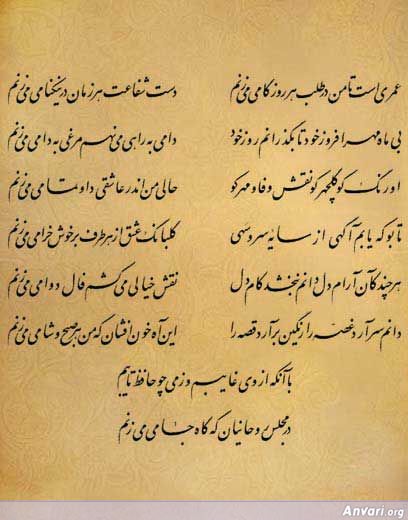 عمریست تا من در طلب هر روز گامی می زنم دست شفاعت هر زمان در نیکنامی می زنم
بی ماه مهر افروز خود تا بگذرانم روز خود دامی به راهی می نهم مرغی به دامی می زنم
اورنگ کو گلچهر کو نقش وفا و مهر کو حالی من اندر عاشقی داو تمامی می زنم
تا بو که یابم آگهی از سایه سرو سهی گلبانگ عشق از هر طرف بر خوش خرامی می زنم
هر چند کآن آرام دل دانم نبخشد کام دل نقش خیالی می کشم فال دوامی می زنم
دانم سر آرد غصه را رنگین برآرد قصه را این آه خون افشان که من هر صبح و شامی می زنم
با آنکه از وی غایبم وز می چو حافظ تایبم
در مجلس روحانیان گه گاه جامی می زنم
Anvari.org